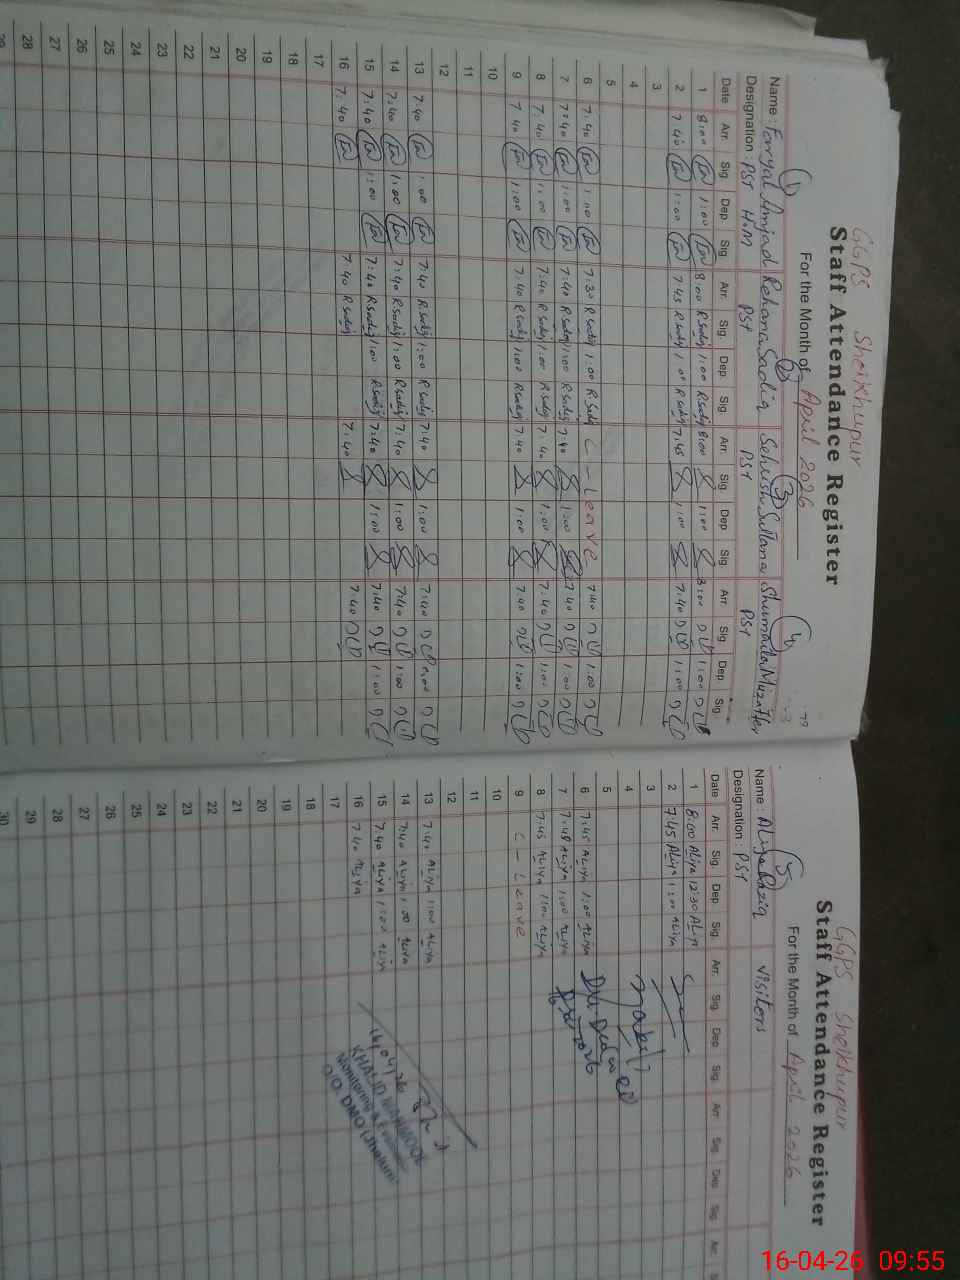 GGPS Sheikhupur
Staff Attendance Register
For the Month of April 2026
(1) (2) (3) (4)
Name : Forryal Amjad Rehana Sadiq Sehrish Sultana Shumaila Muzaffer
Designation : PST H.M PST PST PST
Date Arr. Sig. Dep. Sig. Arr. Sig. Dep. Sig. Arr. Sig. Dep. Sig. Arr. Sig. Dep. Sig.
1 8:00 1:00 8:00 R Sadiq 1:00 R Sadiq 8:00 1:00 8:00 1:00
2 7:40 1:00 7:45 R Sadiq 1:00 R Sadiq 7:45 1:00 7:40 1:00
3
4
5
6 7:40 1:00 7:30 R Sadiq 1:00 R Sadiq C-Leave 7:40 1:00
7 7:40 1:00 7:40 R Sadiq 1:00 R Sadiq 7:40 1:00 7:40 1:00
8 7:40 1:00 7:40 R Sadiq 1:00 R Sadiq 7:40 1:00 7:40 1:00
9 7:40 1:00 7:40 R Sadiq 1:00 R Sadiq 7:40 1:00 7:40 1:00
10
11
12
13 7:40 1:00 7:40 R Sadiq 1:00 R Sadiq 7:40 1:00 7:40 1:00
14 7:40 1:00 7:40 R Sadiq 1:00 R Sadiq 7:40 1:00 7:40 1:00
15 7:40 1:00 7:40 R Sadiq 1:00 R Sadiq 7:40 1:00 7:40 1:00
16 7:40 7:40 R Sadiq 7:40 7:40
17
18
19
20
21
22
23
24
25
26
27
28
29
GGPS Sheikhupur
Staff Attendance Register
For the Month of April 2026
(5)
Name : Aliya Raziq Visitors
Designation : PST
Date Arr. Sig. Dep. Sig. Arr. Sig. Dep. Sig. Arr. Sig. Dep. Sig. Arr.
1 8:00 ALiya 12:30 ALiya
2 7:45 ALiya 1:00 ALiya
3
4
5
6 7:45 ALiya 1:00 ALiya
7 7:48 ALiya 1:00 ALiya
8 7:45 ALiya 1:00 ALiya
9 C-Leave
10
11
12
13 7:40 ALiya 1:00 ALiya
14 7:40 ALiya 1:00 ALiya
15 7:40 ALiya 1:00 ALiya
16 7:40 ALiya
17
18
19
20
21
22
23
24
25
26
27
28
29
30
16/04/26
KHALID MAHMOOD
Monitoring &
O/O DMO (Jhelum)
16-04-26 09:55